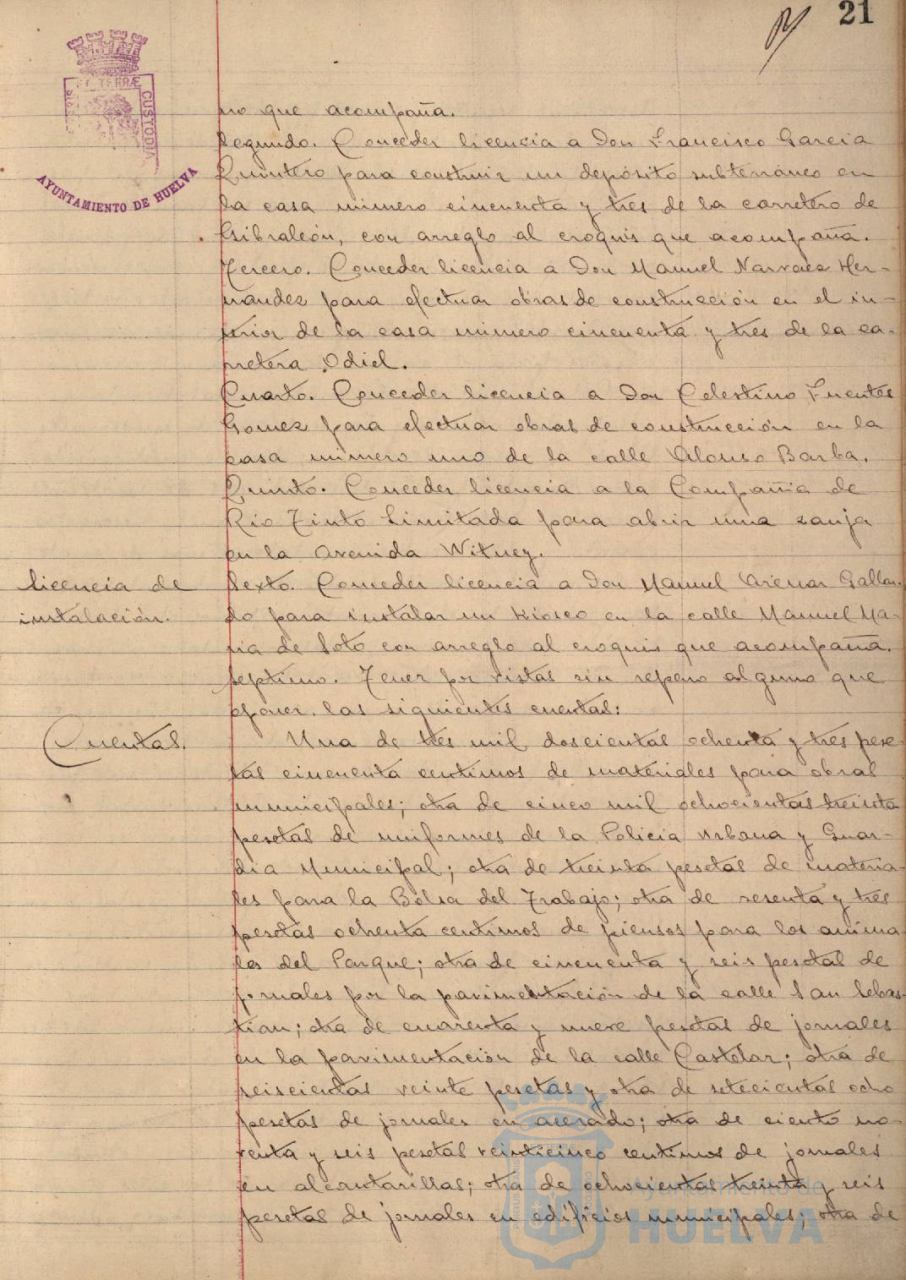 21
TERRÆ
CUSTODIA
AYUNTAMIENTO DE HUELVA
no que acompaña.
Segundo. Conceder licencia a Don Francisco Garcia
Quintero para construir un depósito subterráneo en
la casa número cincuenta y tres de la carretero de
Gibraleón, con arreglo al croquis que acompaña.
Tercero. Conceder licencia a Don Manuel Narvaez Her-
nandez para efectuar obras de construcción en el in-
terior de la casa número cincuenta y tres de la ca-
rretera Odiel.
Cuarto. Conceder licencia a Don Celestino Fuentes
Gomez para efectuar obras de construcción en la
casa número uno de la calle Alonso Barba.
Quinto. Conceder licencia a la Compañia de
Rio Tinto Limitada para abrir una zanja
en la Avenida Witney.
licencia de
instalación.
Sexto. Conceder licencia a Don Manuel Gallar-
do para instalar un Kiosco en la calle Manuel Ma-
ria de Soto con arreglo al croquis que acompaña.
Septimo. Tener por vistas sin reparo alguno que
oponer las siguientes cuentas:
Cuentas.
Una de tres mil doscientas ochenta y tres pese-
tas cincuenta centimos de materiales para obras
municipales; otra de cinco mil ochocientas treinta
pesetas de uniformes de la Policia Urbana y Guar-
dia Municipal; otra de treinta pesetas de materia-
les para la Bolsa del Trabajo; otra de sesenta y tres
pesetas ochenta centimos de piensos para los anima-
les del Parque; otra de cincuenta y seis pesetas de
jornales por la pavimentación de la calle San Sebas-
tian; otra de cuarenta y nueve pesetas de jornales
en la pavimentación de la calle Castelar; otra de
seiscientas veinte pesetas y otra de setecientas ocho
pesetas de jornales en acerado; otra de ciento no-
venta y seis pesetas veinticinco centimos de jornales
en alcantarillas; otra de ochocientas treinta y seis
pesetas de jornales en edificios municipales; otra de
Ayuntamiento de
HUELVA